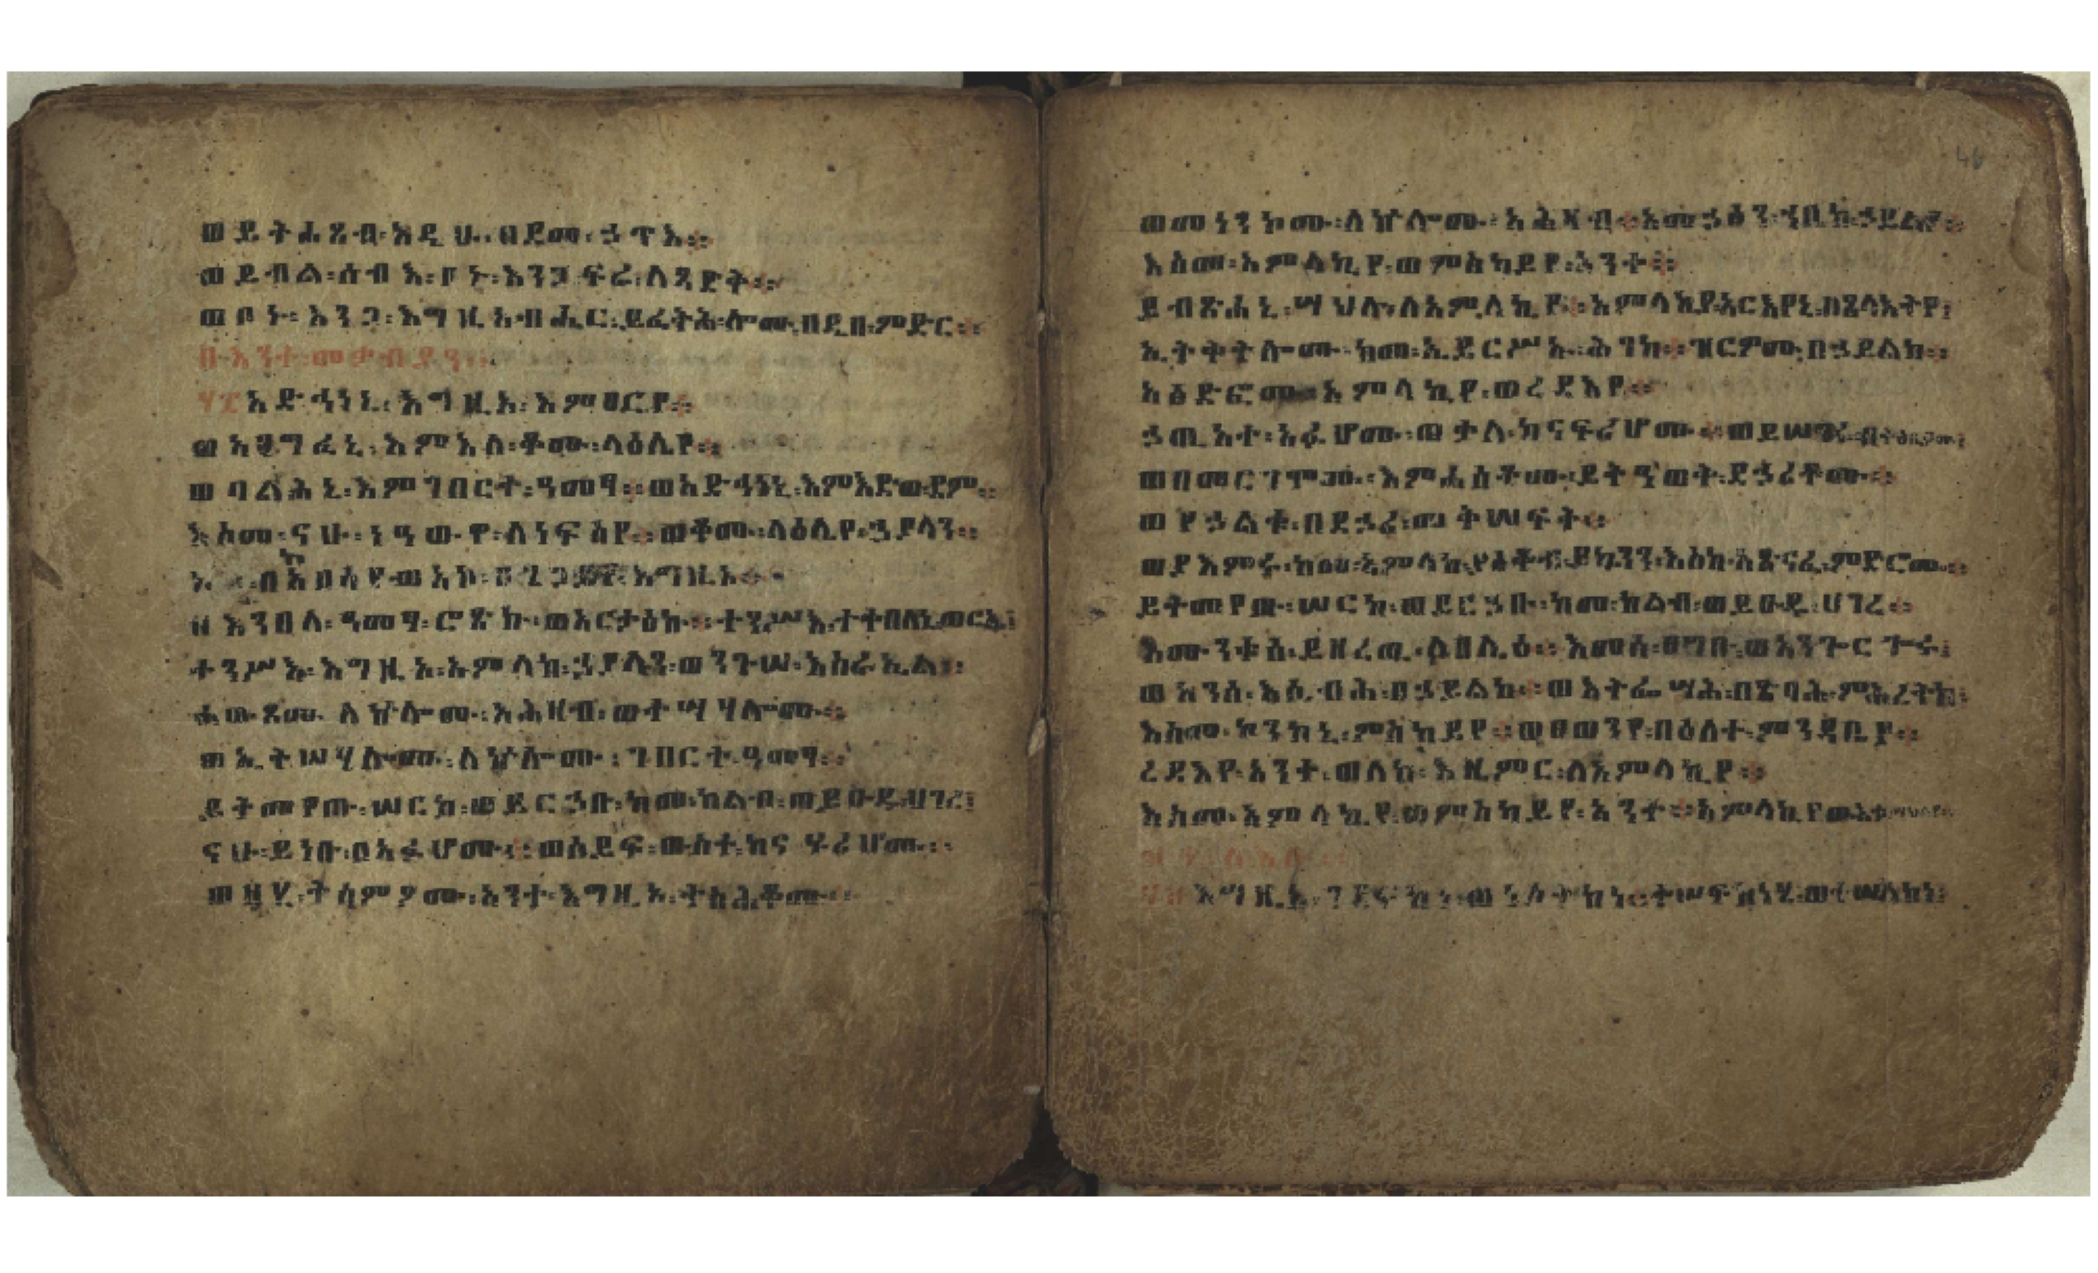 ወይትሐፀብ፡ እዲሁ፡ በደመ፡ ኃጥእ።
ወይብል፡ ሰብእ፡ ቦኑ፡ እንጋ፡ ፍሬ፡ ለጻድቅ።
ወቦኑ፡ እንጋ፡ እግዚአብሔር፡ ይፈትሕ፡ ሎሙ፡ በዲበ፡ ምድር።
በእንተ፡ መቃብያን።
፶፰ አድኅነኒ፡ እግዚኦ፡ እምፀርየ።
ወአንግፈኒ፡ እምእለ፡ ቆሙ፡ ላዕሌየ።
ወባልሐኒ፡ እምገበርተ፡ ዓመፃ። ወአድኅነኒ፡ እምዕድወ፡ ደም።
እስመ፡ ናሁ፡ ነዓውዋ፡ ለነፍስየ። ወቆሙ፡ ላዕሌየ፡ ኃያላን።
በአበሳየ፡ ወአኮ፡ በጌጋይየ፡ እግዚኦ።
ዘእንበለ፡ ዓመፃ፡ ሮጽኩ፡ ወአርታዕኩ። ተንሥእ፡ ተቀበለኒ፡ ወርኢ፤
ተንሥእ፡ እግዚኦ፡ አምላከ፡ ኃያላን፡ ወንጉሠ፡ እስራኤል፤
ሐውጾሙ፡ ለኵሎሙ፡ አሕዛብ፡ ወተሣሃሎሙ።
ወኢትሣሃሎሙ፡ ለኵሎሙ፡ ገበርተ፡ ዓመፃ።
ይትመየጡ፡ ሠርከ፡ ወይርኃቡ፡ ከመ፡ ከልብ፡ ወይዑዱ፡ ሀገረ፤
ናሁ፡ ይነቡ፡ በአፉሆሙ። ወሰይፍ፡ ውስተ፡ ከናፍሪሆሙ።
ወይቤ፡ ትስምዖሙ፡ አንተ፡ እግዚኦ፡ ትስሕቆሙ።
ወመነንኮሙ፡ ለኵሎሙ፡ አሕዛብ። አመኃፅን፡ ኀቤከ፡ ኃይልየ።
እስመ፡ አምላኪየ፡ ወምስካይየ፡ አንተ።
ይብጽሐኒ፡ ሣህሉ፡ ለአምላኪየ። አምላኪየ፡ አርእየኒ፡ በጸላእትየ፤
ኢትቅትሎሙ፡ ከመ፡ ኢይርሥኡ፡ ሕገከ። ዝርዎሙ፡ በኃይልከ።
አፅድፎሙ፡ አምላኪየ፡ ወረዳእየ።
ኃጢአተ፡ አፉሆሙ፡ ወቃለ፡ ከናፍሪሆሙ። ወይሠገሩ፡ በትዕቢቶሙ፤
ወበመርገሞሙ፡ እምሐሰቶሙ፡ ይትዓወቅ፡ ደኃሪቶሙ።
ወየኃልቁ፡ በደኃሪ፡ መቅሠፍት።
ወያእምሩ፡ ከመ፡ አምላከ፡ ያዕቆብ፡ ይኴንን፡ እስከ፡ አጽናፈ፡ ምድር።
ይትመየጡ፡ ሠርከ፡ ወይርኃቡ፡ ከመ፡ ከልብ፡ ወይዑዱ፡ ሀገረ።
እሙንቱሰ፡ ይዘረዉ፡ ለበሊዕ። እመሰ፡ ፀግቡ፡ ወአንጐርጐሩ፤
ወአንሰ፡ እሴብሕ፡ በኃይልከ። ወእትፌሣሕ፡ በጽባሕ፡ ምሕረትከ፤
እስመ፡ ኮንከኒ፡ ምስካይየ። ወፀወንየ፡ በዕለተ፡ ምንዳቤየ።
ረዳእየ፡ አንተ፡ ወለከ፡ እዜምር፡ ለአምላኪየ።
እስመ፡ አምላኪየ፡ ወምስካይየ፡ አንተ። አምላኪየ፡ ውእቱ
እግዚኦ፡ ገደፍከነ፡ ወነሠትከነ። ተቀሠፍከነሂ፡ ወተሣሃልከነ፤